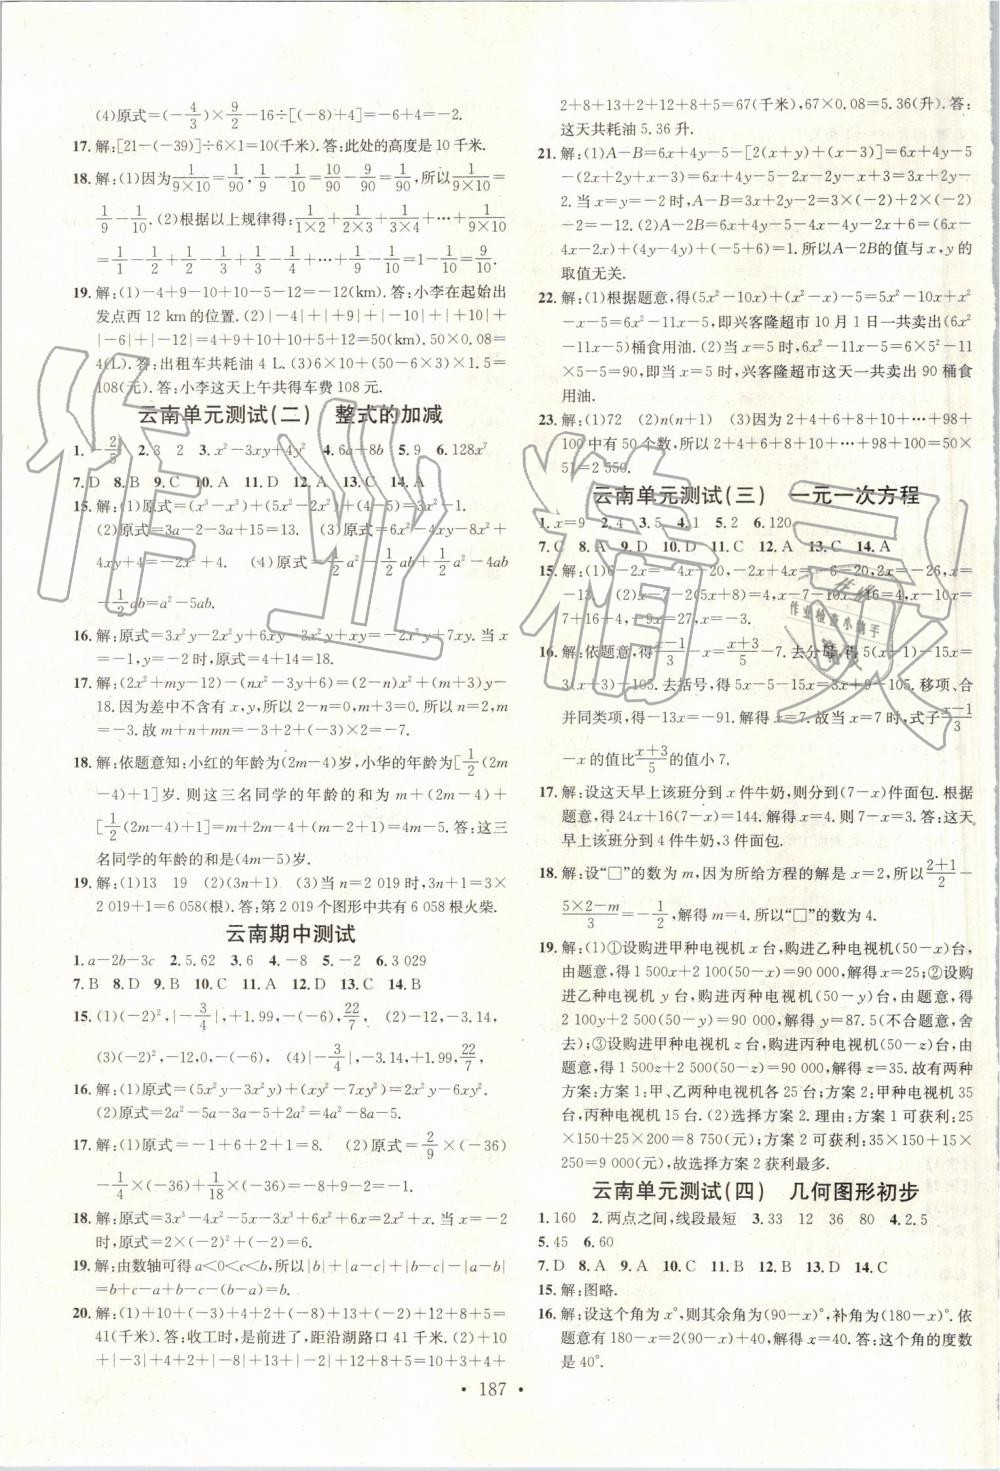 (4)原式=(-4/3)×9/2-16÷[(-8)+4]=-6+4=-2.
17. 解:[21-(-39)]÷6×1=10(千米).答:此处的高度是 10 千米.
18. 解:(1)因为1/(9×10)=1/90,1/9-1/10=10/90-9/90=1/90,所以1/(9×10)=
1/9-1/10. (2)根据以上规律得:1/(1×2)+1/(2×3)+1/(3×4)+…+1/(9×10)
=1/1-1/2+1/2-1/3+1/3-1/4+…+1/9-1/10=1-1/10=9/10.
19. 解:(1)-4+9-10+10-5-12=-12(km).答:小李在起始出
发点西 12 km 的位置. (2)|-4|+|+9|+|-10|+|+10|+
|-6|+|-12|=4+9+10+10+5+12=50(km).50×0.08=
4(L).答:出租车共耗油 4 L. (3)6×10+(50-6×3)×1.5=
108(元).答:小李这天上午共得车费 108 元.
云南单元测试(二) 整式的加减
1. -2/5 2. 3 2 3. x²-3xy+4y² 4. 6a+8b 5. 9 6. 128x⁷
7. D 8. B 9. C 10. A 11. D 12. A 13. C 14. A
15. 解:(1)原式=(x³-x³)+(5x²-2x²)+(4-5)=3x²-1.
(2)原式=3a-2-3a+15=13. (3)原式=6x²-4xy-8x²+
4xy+4=-2x²+4. (4)原式=-1/2a²-1/2ab+1/2a²-4ab
-1/2ab=a²-5ab.
16. 解:原式=3x²y-2x²y+6xy-3x²y+xy=-2x²y+7xy.当 x
=-1,y=-2 时,原式=4+14=18.
17. 解:(2x²+my-12)-(nx²-3y+6)=(2-n)x²+(m+3)y-
18.因为差中不含有 x,y,所以 2-n=0,m+3=0.所以 n=2,m
=-3.故 m+n+mn=-3+2+(-3)×2=-7.
18. 解:依题意知:小红的年龄为(2m-4)岁,小华的年龄为[1/2(2m
-4)+1]岁.则这三名同学的年龄的和为 m+(2m-4)+
[1/2(2m-4)+1]=m+2m-4+m-2+1=4m-5.答:这三
名同学的年龄的和是(4m-5)岁.
19. 解:(1)13 19 (2)(3n+1) (3)当 n=2 019 时,3n+1=3×
2 019+1=6 058(根).答:第 2 019 个图形中共有 6 058 根火柴.
云南期中测试
1. a-2b-3c 2. 5.62 3. 6 4. -8 5. -2 6. 3 029
7. B 8. D 9. B 10. C 11. A 12. D 13. C 14. B
15. (1)(-2)²,|-3/4|,+1.99,-(-6),22/7, (2)-12,-3.14,
(3)(-2)²,-12,0,-(-6) (4)|-3/4|,-3.14,+1.99,22/7,
16. 解:(1)原式=(5x²y-3x²y)+(xy²-7xy²)=2x²y-6xy².
(2)原式=2a²-5a-3a+2a²-5=4a²-8a-5.
17. 解:(1)原式=-1+6+2+1=8. (2)原式=2/9×(-36)
-1/4×(-36)+1/18×(-36)=-8+9-2=-1.
18. 解:原式=3x³-4x²-5x-3x+6x²+6x=2x²-2x.当 x=-2
时,原式=2×(-2)²-2×(-2)=6.
19. 解:由数轴可得 a<0<c<b,所以|b|+|a-c|+|b|-|a-b|
=b+c-a+b-c-(b-a)=b.
20. 解:(1)+10+(-3)+4+2+(-8)+13+(-2)+12+8+5=
41(千米).答:收工时,是前进了,距沿湖路口 41 千米. (2)+10
+|-3|+4+2+|-8|+13+|-2|+12+8+5=10+3+4+
2+8+13+2+12+8+5=67(千米),67×0.08=5.36(升).答:
这天共耗油 5.36 升.
21. 解:(1)A-B=6x+4y-5-[2(x+y)+(x-3)]=6x+4y-5
-(2x+2y+x-3)=6x+4y-5-2x-2y-x+3=3x+2y-
2.当 x=y=-2时,A-B=3x+2y-2=3×(-2)+2×(-2)-
2=-12. (2)A-2B=6x+4y-5-4x-4y-2x+6=(6x-
4x-2x)+(4y-4y)+(-5+6)=1.所以A-2B的值与 x,y 的
取值无关.
22. 解:(1)根据题意,得(5x²-10x)+(x²-x)-5=5x²-10x+x²
-x-5=6x²-11x-5,即兴客隆超市 10 月 1 日一共卖出(6x²
-11x-5)桶食用油. (2)当 x=5 时,6x²-11x-5=6×5²-11
×5-5=90.答:当 x=5 时,兴客隆超市这天一共卖出 90 桶食
用油.
23. 解:(1)72 (2)n(n+1) (3)因为 2+4+6+8+10+…+98+
100 中有 50 个数,所以 2+4+6+8+10+…+98+100=50×
51=2 550.
云南单元测试(三) 一元一次方程
1. x=9 2. 4 3. 5 4. 1 5. 2 6. 120
7. C 8. A 9. D 10. D 11. C 12. A 13. C 14. A
15. 解:(1)6-2x=-4x-20,-2x+4x=-6-20,2x=-26,x=
-13. (2)x-7-2(5x+8)=4,x-7-10x-16=4,x-10x=
7+16+4,-9x=27,x=-3.
16. 解:依题意,得(x-1)/3-x=(x+3)/5-7.去分母,得 5(x-1)-15x=
3(x+3)-105.去括号,得 5x-5-15x=3x+9-105.移项、合
并同类项,得-13x=-91.解得 x=7.故当 x=7 时,式子(x-1)/3
-x 的值比(x+3)/5的值小 7.
17. 解:设这天早上该班分到 x 件牛奶,则分到(7-x)件面包.根据
题意,得 24x+16(7-x)=144.解得 x=4.则 7-x=3.答:这天
早上该班分到 4 件牛奶,3 件面包.
18. 解:设“□”的数为 m,因为所给方程的解是 x=2,所以(2+1)/2-
(5×2-m)/3=-1/2,解得 m=4.所以“□”的数为 4.
19. 解:(1)①设购进甲种电视机 x 台,购进乙种电视机(50-x)台,
由题意,得 1 500x+2 100(50-x)=90 000,解得 x=25;②设购
进乙种电视机 y 台,购进丙种电视机(50-y)台,由题意,得
2 100y+2 500(50-y)=90 000,解得 y=87.5(不合题意,舍
去);③设购进甲种电视机 z 台,购进丙种电视机(50-z)台,由
题意,得 1 500z+2 500(50-z)=90 000,解得 z=35.故有两种
方案:方案 1:甲、乙两种电视机各 25 台;方案 2:甲种电视机 35
台,丙种电视机 15 台. (2)选择方案 2.理由:方案 1 可获利:25
×150+25×200=8 750(元);方案 2 可获利:35×150+15×
250=9 000(元),故选择方案 2 获利最多.
云南单元测试(四) 几何图形初步
1. 160 2. 两点之间,线段最短 3. 33 12 36 80 4. 2.5
5. 45 6. 60
7. D 8. A 9. A 10. C 11. B 12. D 13. D 14. C
15. 解:图略.
16. 解:设这个角为 x°,则其余角为(90-x)°,补角为(180-x)°.依
题意有 180-x=2(90-x)+40,解得 x=40.答:这个角的度数
是 40°.
• 187 •
作业精灵
作业检查小帮手